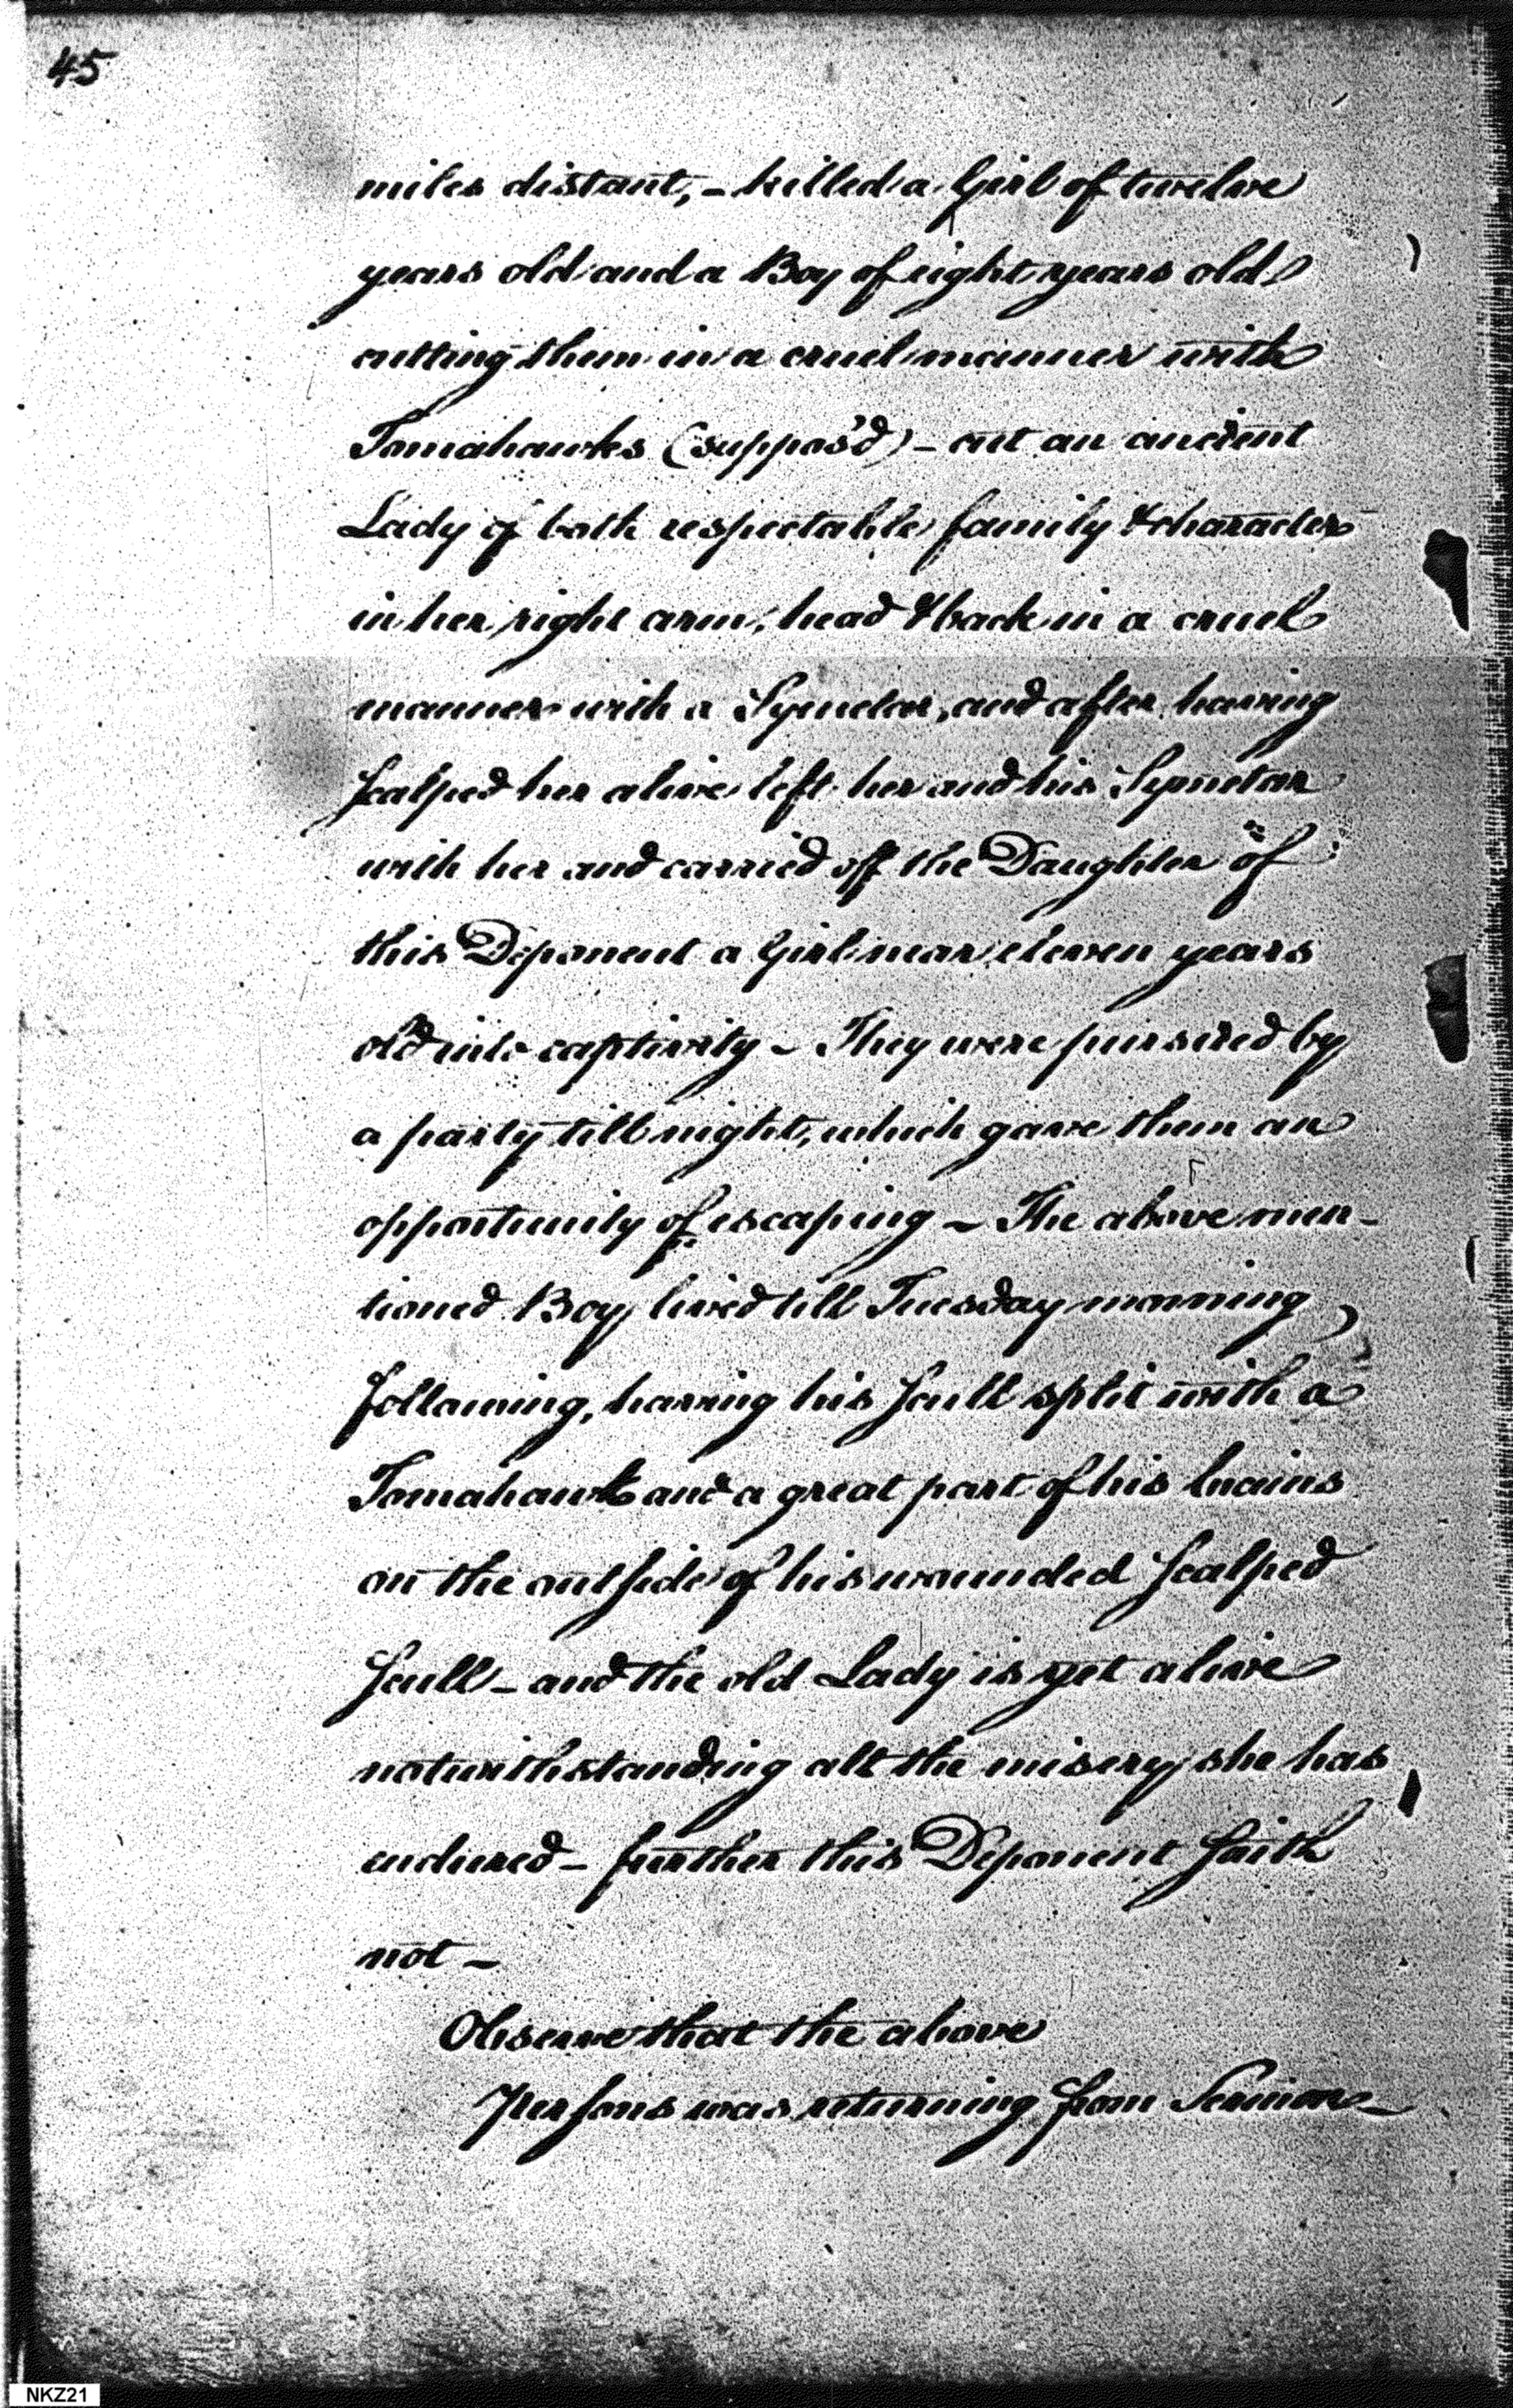 45
miles distant, - killed a Girl of twelve
years old and a Boy of eight years old
cutting them in a cruel manner with
Tomahawks (suppos'd) - cut an ancient
Lady of both respectable family & character
in her right arm, head & back in a cruel
manner with a Symetar, and after having
Scalped her alive left her and his Symetar
with her and carried off the Daughter of
this Deponent a Girl near eleven years
old into captivity - They were pursued by
a party till night, which gave them an
opportunity of escaping - The above men-
tioned Boy lived till Tuesday morning
following, having his Scull split with a
Tomahawk and a great part of his brains
on the outside of his wounded Scalped
Scull - and the old Lady is yet alive
notwithstanding all the misery she has
endured - further this Deponent Saith
not -
Observe that the above
Persons was returning from Sermon -
NKZ21